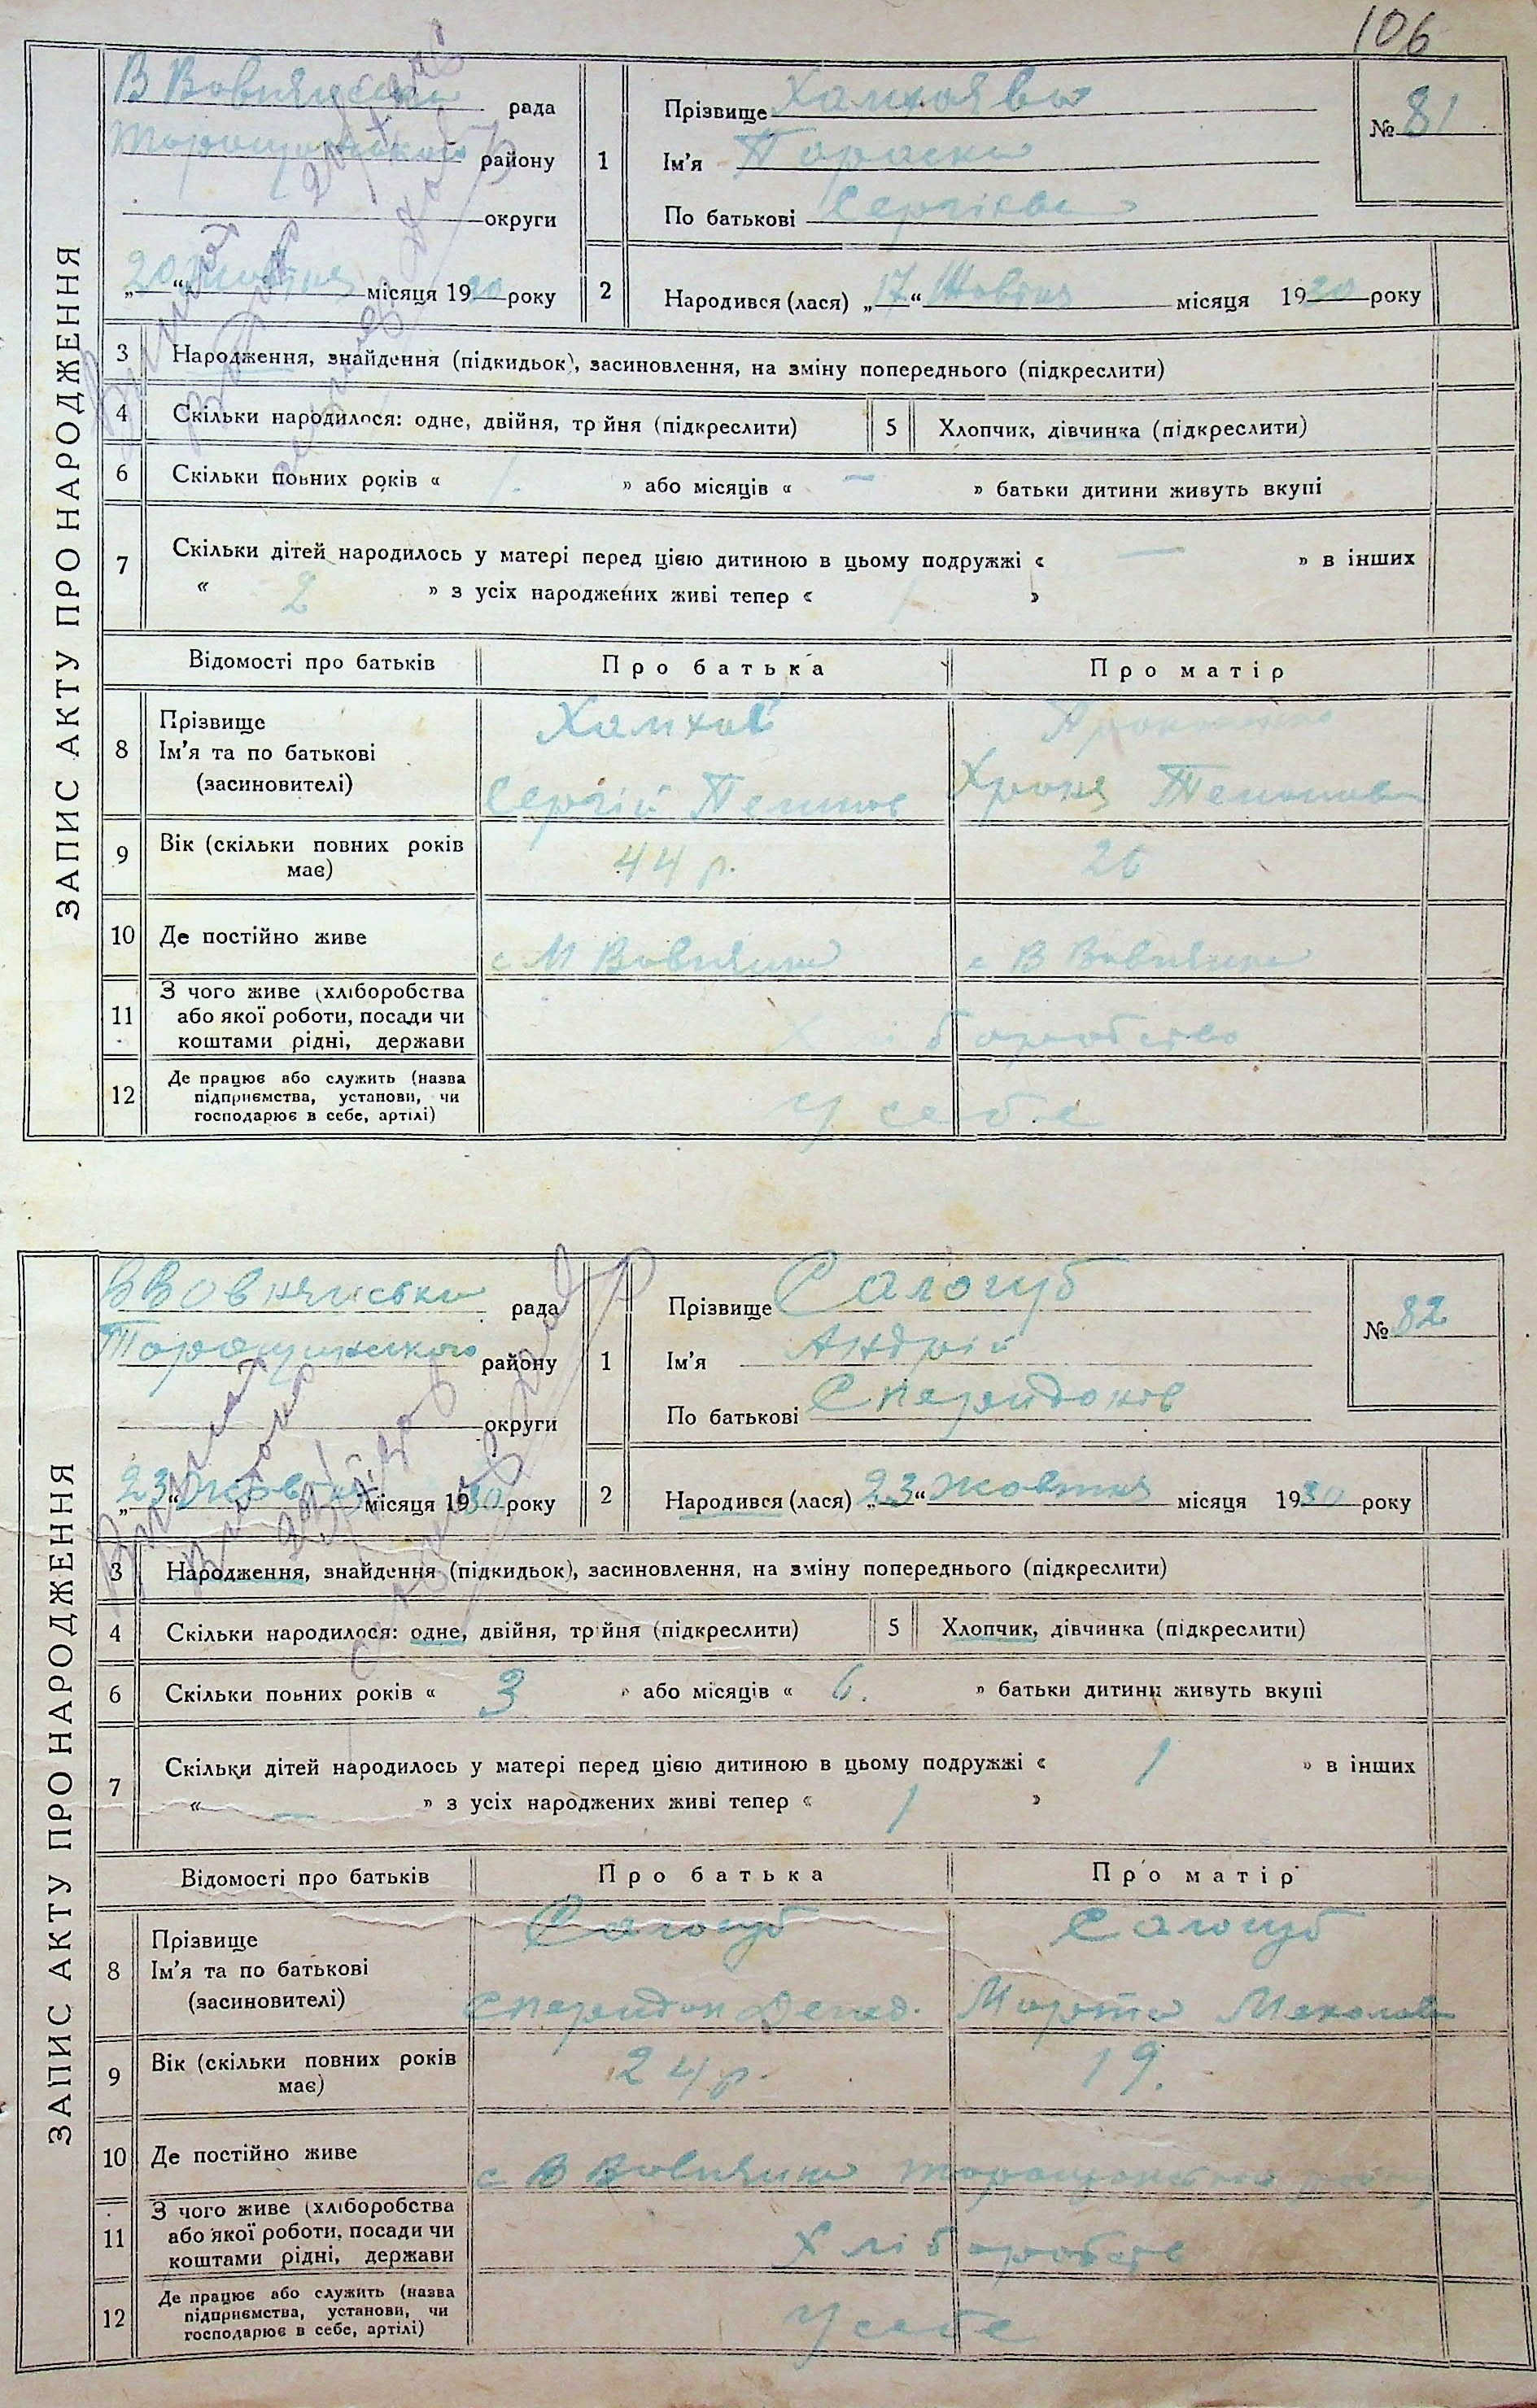 106
ЗАПИС АКТУ ПРО НАРОДЖЕННЯ
В Вовнянська рада
Таращанського району
округи
„20“ Жовтня місяця 1930 року
1
Прізвище
Ім'я Параска
По батькові Сергієва
№ 81
2
Народився (лася) „17“ Жовтня місяця 1930 року
3 Народження, знайдення (підкидьок), засиновлення, на зміну попереднього (підкреслити)
4 Скільки народилося: одне, двійня, трійня (підкреслити)
5 Хлопчик, дівчинка (підкреслити)
6 Скільки повних років « 1. » або місяців « — » батьки дитини живуть вкупі
7 Скільки дітей народилось у матері перед цією дитиною в цьому подружжі « — » в інших
« 2 » з усіх народжених живі тепер « »
Відомості про батьків Про батька Про матір
8 Прізвище
Ім'я та по батькові
(засиновителі)
Сергій
9 Вік (скільки повних років має) 44 р. 26
10 Де постійно живе с М Вовнянка с В Вовнянка
11 З чого живе (хліборобства
або якої роботи, посади чи
коштами рідні, держави
Хліборобство
12 Де працює або служить (назва
підприємства, установи, чи
господарює в себе, артілі)
У себе
ЗАПИС АКТУ ПРО НАРОДЖЕННЯ
В Вовнянська рада
Таращанського району
округи
„23“ Жовтня місяця 1930 року
1
Прізвище Салогуб
Ім'я Андрій
По батькові Сперидонів
№ 82
2
Народився (лася) „23“ Жовтня місяця 1930 року
3 Народження, знайдення (підкидьок), засиновлення, на зміну попереднього (підкреслити)
4 Скільки народилося: одне, двійня, трійня (підкреслити)
5 Хлопчик, дівчинка (підкреслити)
6 Скільки повних років « 3 » або місяців « 6. » батьки дитини живуть вкупі
7 Скільки дітей народилось у матері перед цією дитиною в цьому подружжі « 1 » в інших
« — » з усіх народжених живі тепер « 1 »
Відомості про батьків Про батька Про матір
8 Прізвище
Ім'я та по батькові
(засиновителі)
Салогуб Салогуб
Сперидон Марта
9 Вік (скільки повних років має) 24 р. 19.
10 Де постійно живе с В Вовнянка Таращанського
11 З чого живе (хліборобства
або якої роботи, посади чи
коштами рідні, держави
Хліборобств
12 Де працює або служить (назва
підприємства, установи, чи
господарює в себе, артілі)
У себе